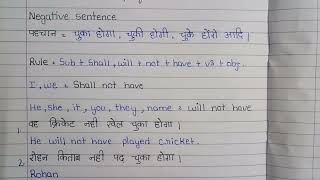 Negative sentence
पहचान = चुका होगा, चुकी होगी, चुके होंगे आदि।
Rule = Sub + Shall, will + not + have + v3 + obj.
I, we = Shall not have
He, she, it, you, they, name = will not have
1. वह क्रिकेट नही खेल चुका होगा।
He will not have played cricket.
2. रोहन किताब नही पढ़ चुका होगा।
Rohan